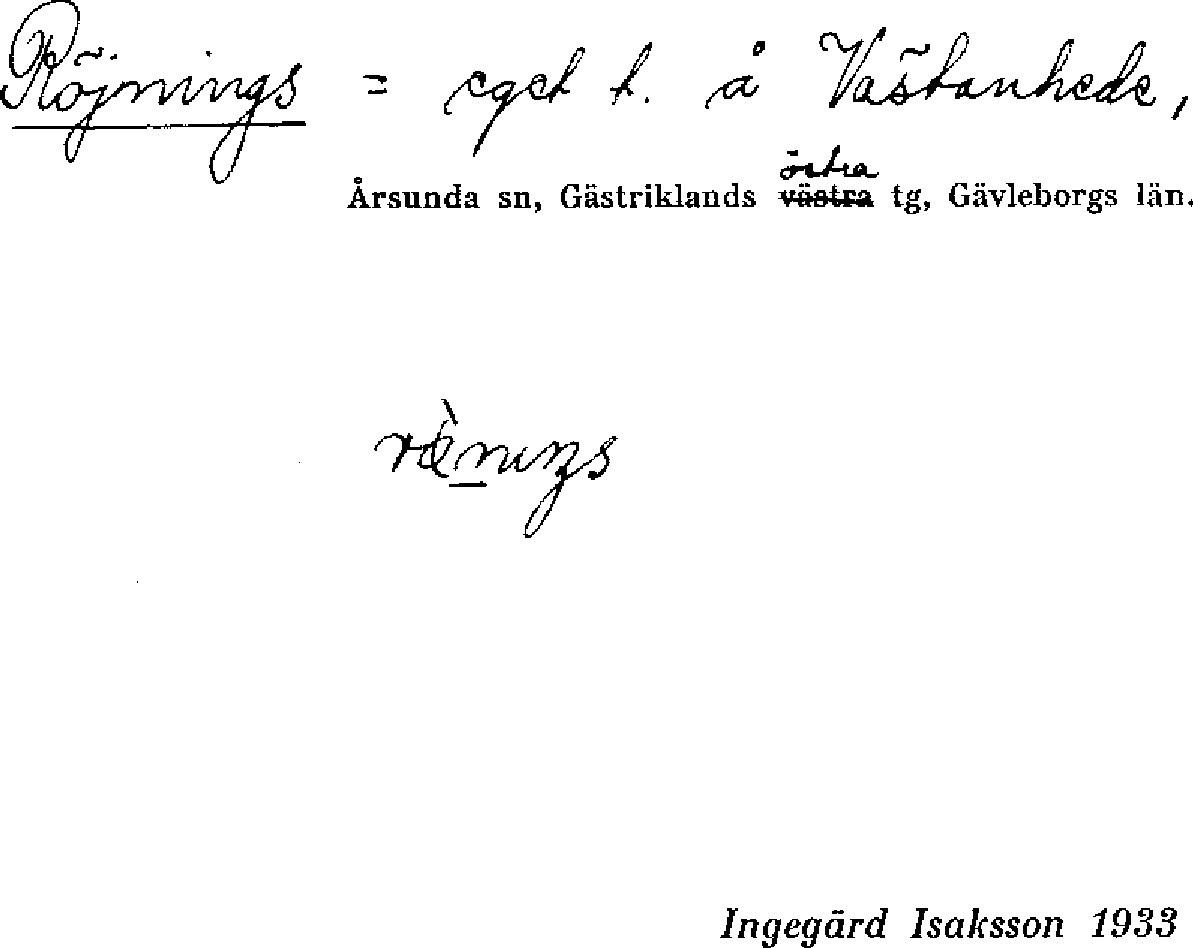 Röjnings = eget t. å Västanhede,
Årsunda sn, Gästriklands östra västra tg, Gävleborgs län.
Ingegärd Isaksson 1933